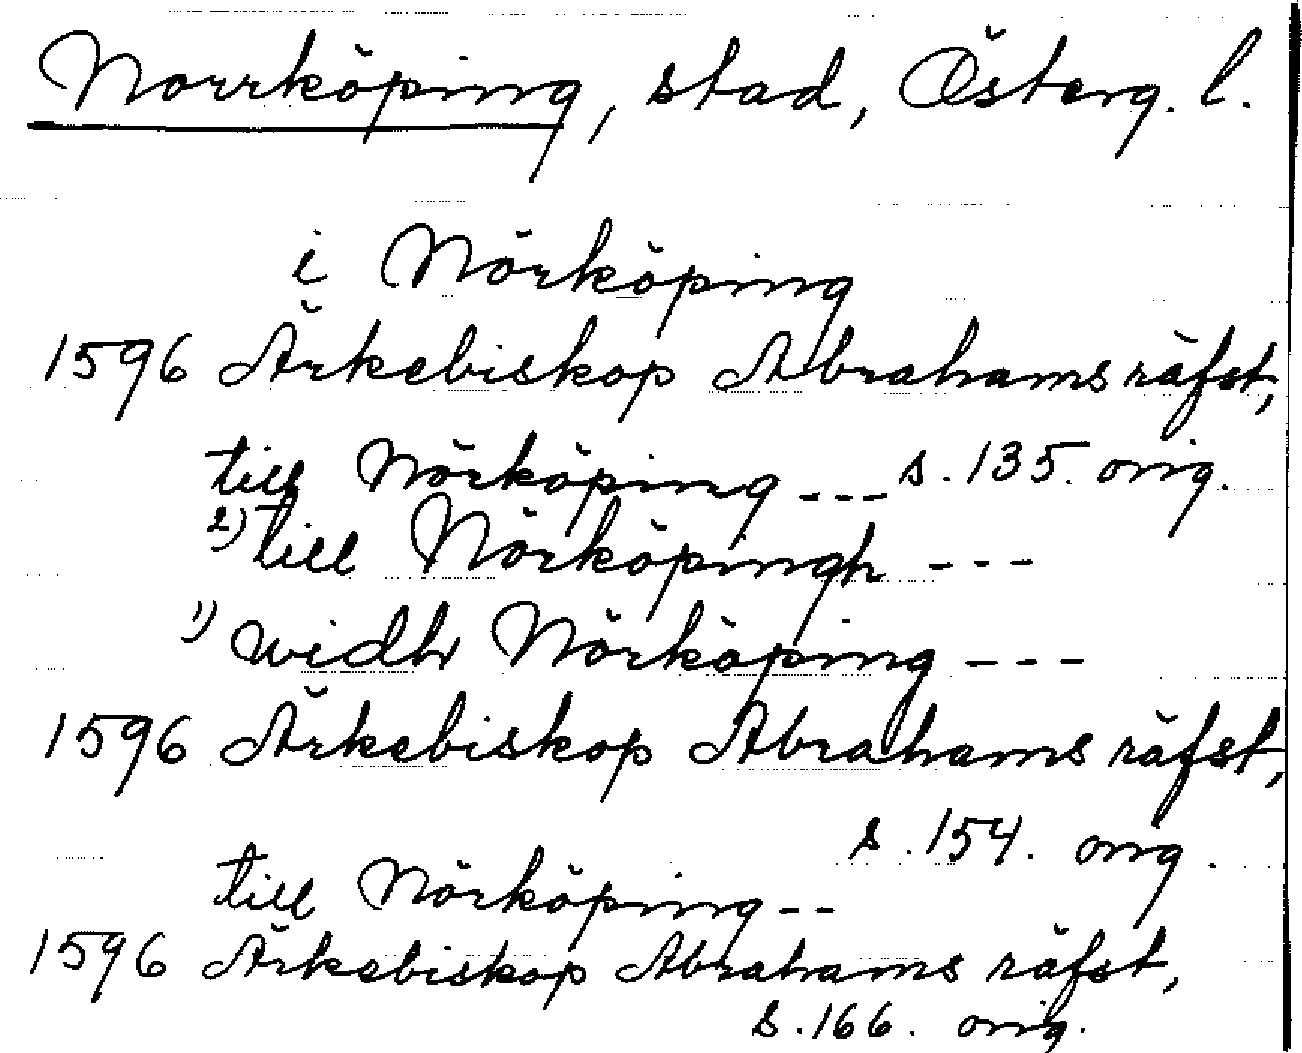 Norrköping, stad, Österg. l.
i Nörköping
1596 Ärkebiskop Abrahams räfst,
s. 135. orig.
till Nörköping ---
2) till Nörköpingh ---
1) widh Nörköping ---
1596 Ärkebiskop Abrahams räfst,
s. 154. orig.
till Nörköping --
1596 Ärkebiskop Abrahams räfst,
s. 166. orig.